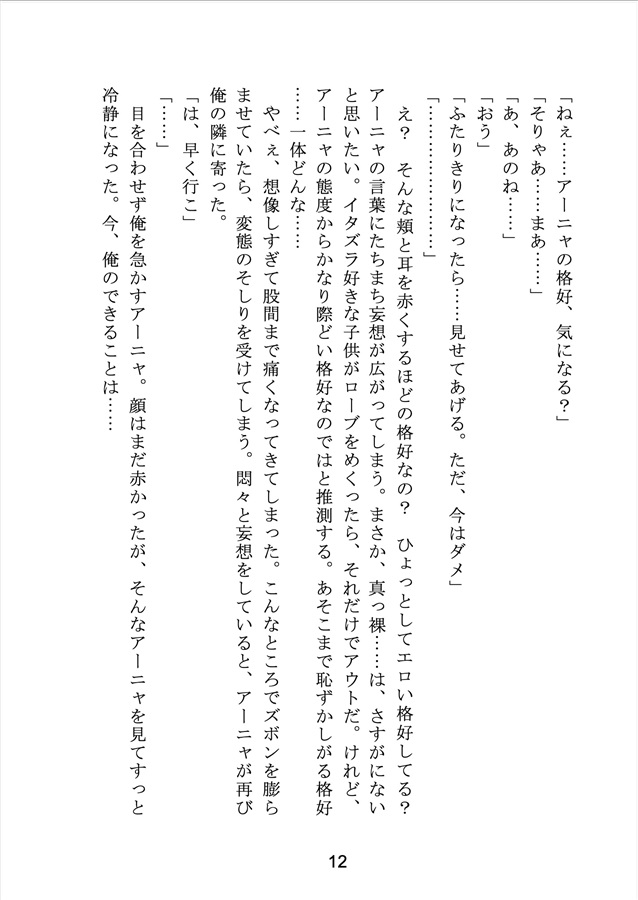 「ねぇ……アーニャの格好、気になる？」
「そりゃあ……まあ……」
「あ、あのね……」
「おう」
「ふたりきりになったら……見せてあげる。ただ、今はダメ」
「…………………」
　え？　そんな頬と耳を赤くするほどの格好なの？　ひょっとしてエロい格好してる？
アーニャの言葉にたちまち妄想が広がってしまう。まさか、真っ裸……は、さすがにない
と思いたい。イタズラ好きな子供がローブをめくったら、それだけでアウトだ。けれど、
アーニャの態度からかなり際どい格好なのではと推測する。あそこまで恥ずかしがる格好
……一体どんな……
　やべぇ、想像しすぎて股間まで痛くなってきてしまった。こんなところでズボンを膨ら
ませていたら、変態のそしりを受けてしまう。悶々と妄想をしていると、アーニャが再び
俺の隣に寄った。
「は、早く行こ」
「……」
　目を合わせず俺を急かすアーニャ。顔はまだ赤かったが、そんなアーニャを見てすっと
冷静になった。今、俺のできることは……
12